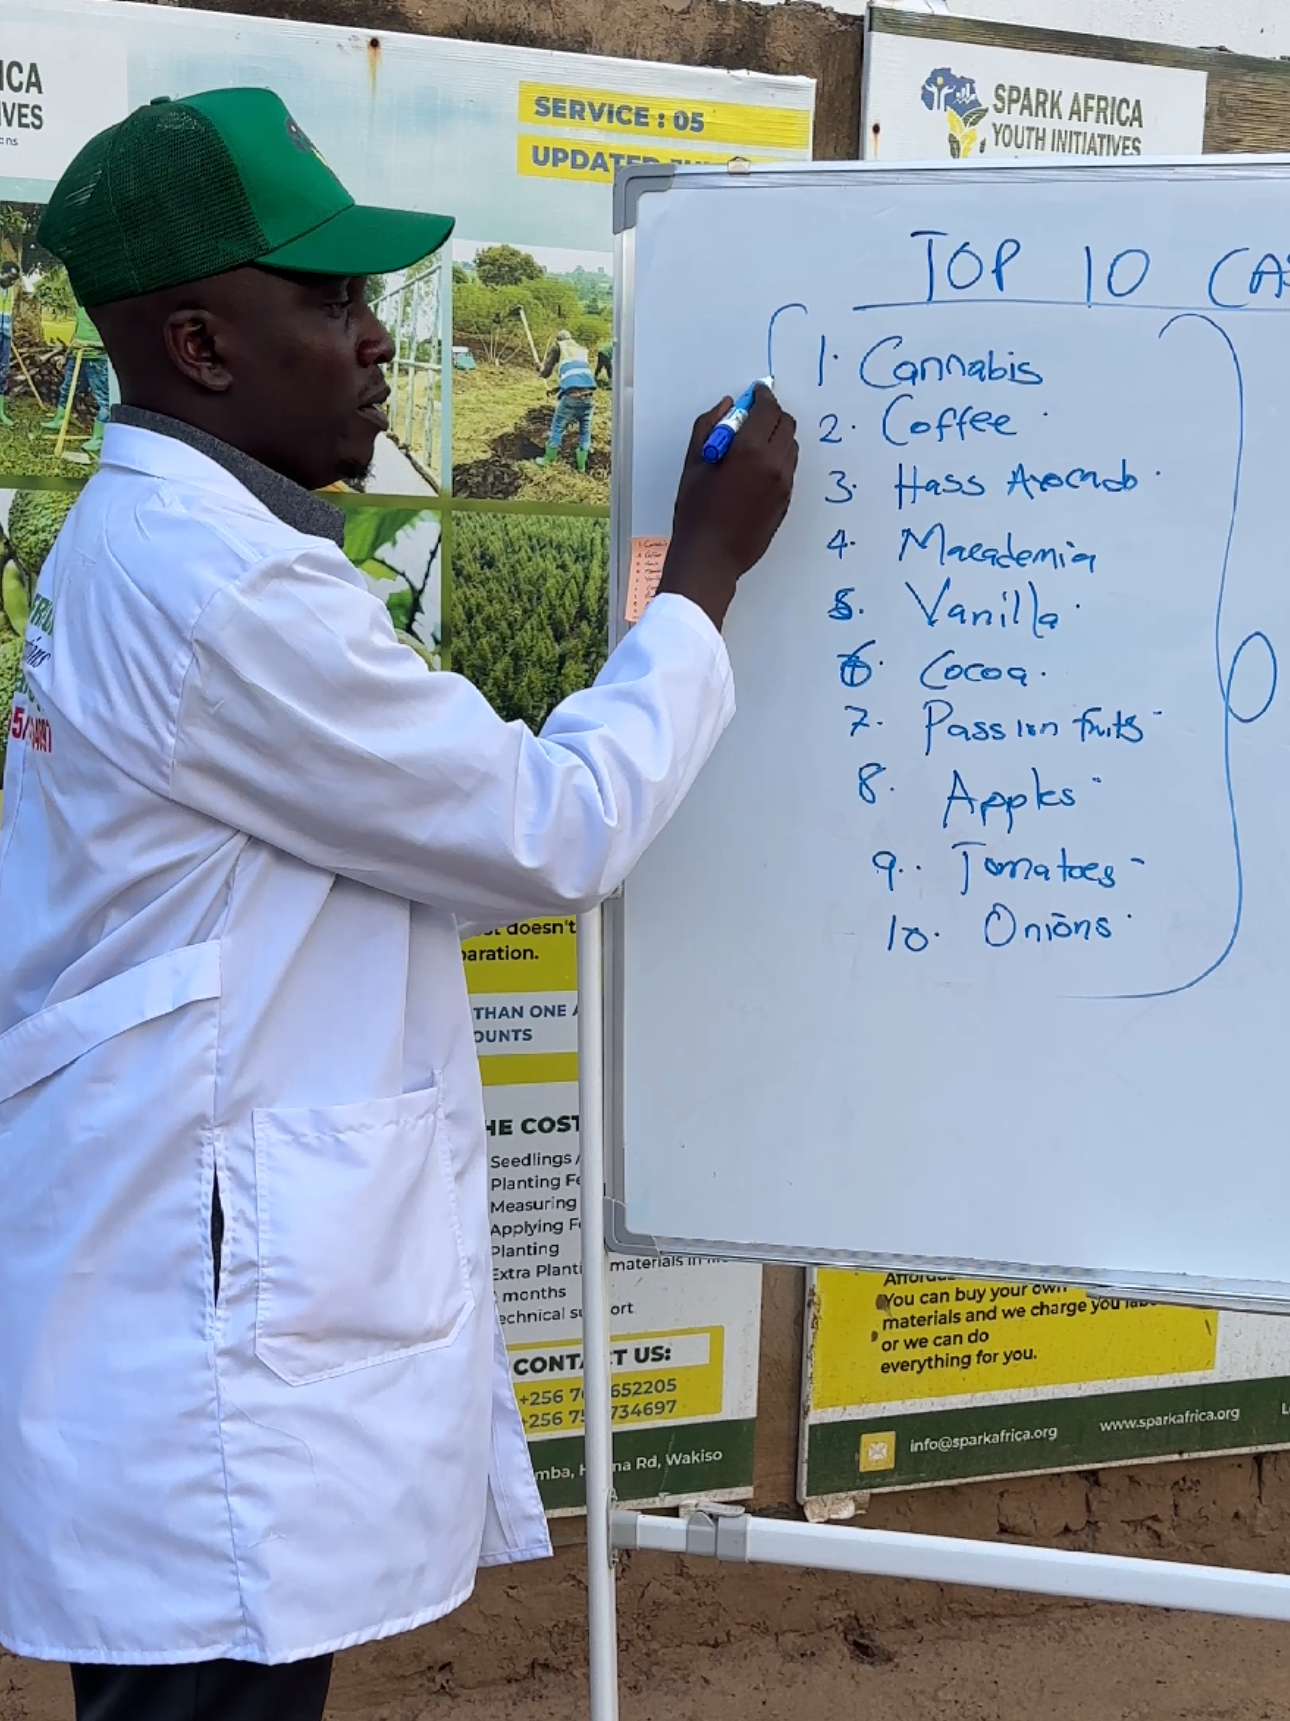 ICA
IVES
SERVICE : 05
UPDATED
SPARK AFRICA
YOUTH INITIATIVES
TOP 10 CA
1. Cannabis
2. Coffee
3. Hass Avocado
4. Macademia
5. Vanilla
6. Cocoa
7. Passion fruits
8. Apples
9. Tomatoes
10. Onions
doesn't
paration.
THAN ONE
OUNTS
HE COST
Seedlings
Planting
Measuring
Applying
Planting
Extra Planti materials in
months
echnical su ort
CONTACT US:
+256 7 652205
+256 75 734697
mba, Ho na Rd, Wakiso
You can buy your own
materials and we charge you
or we can do
everything for you.
info@sparkafrica.org
www.sparkafrica.org